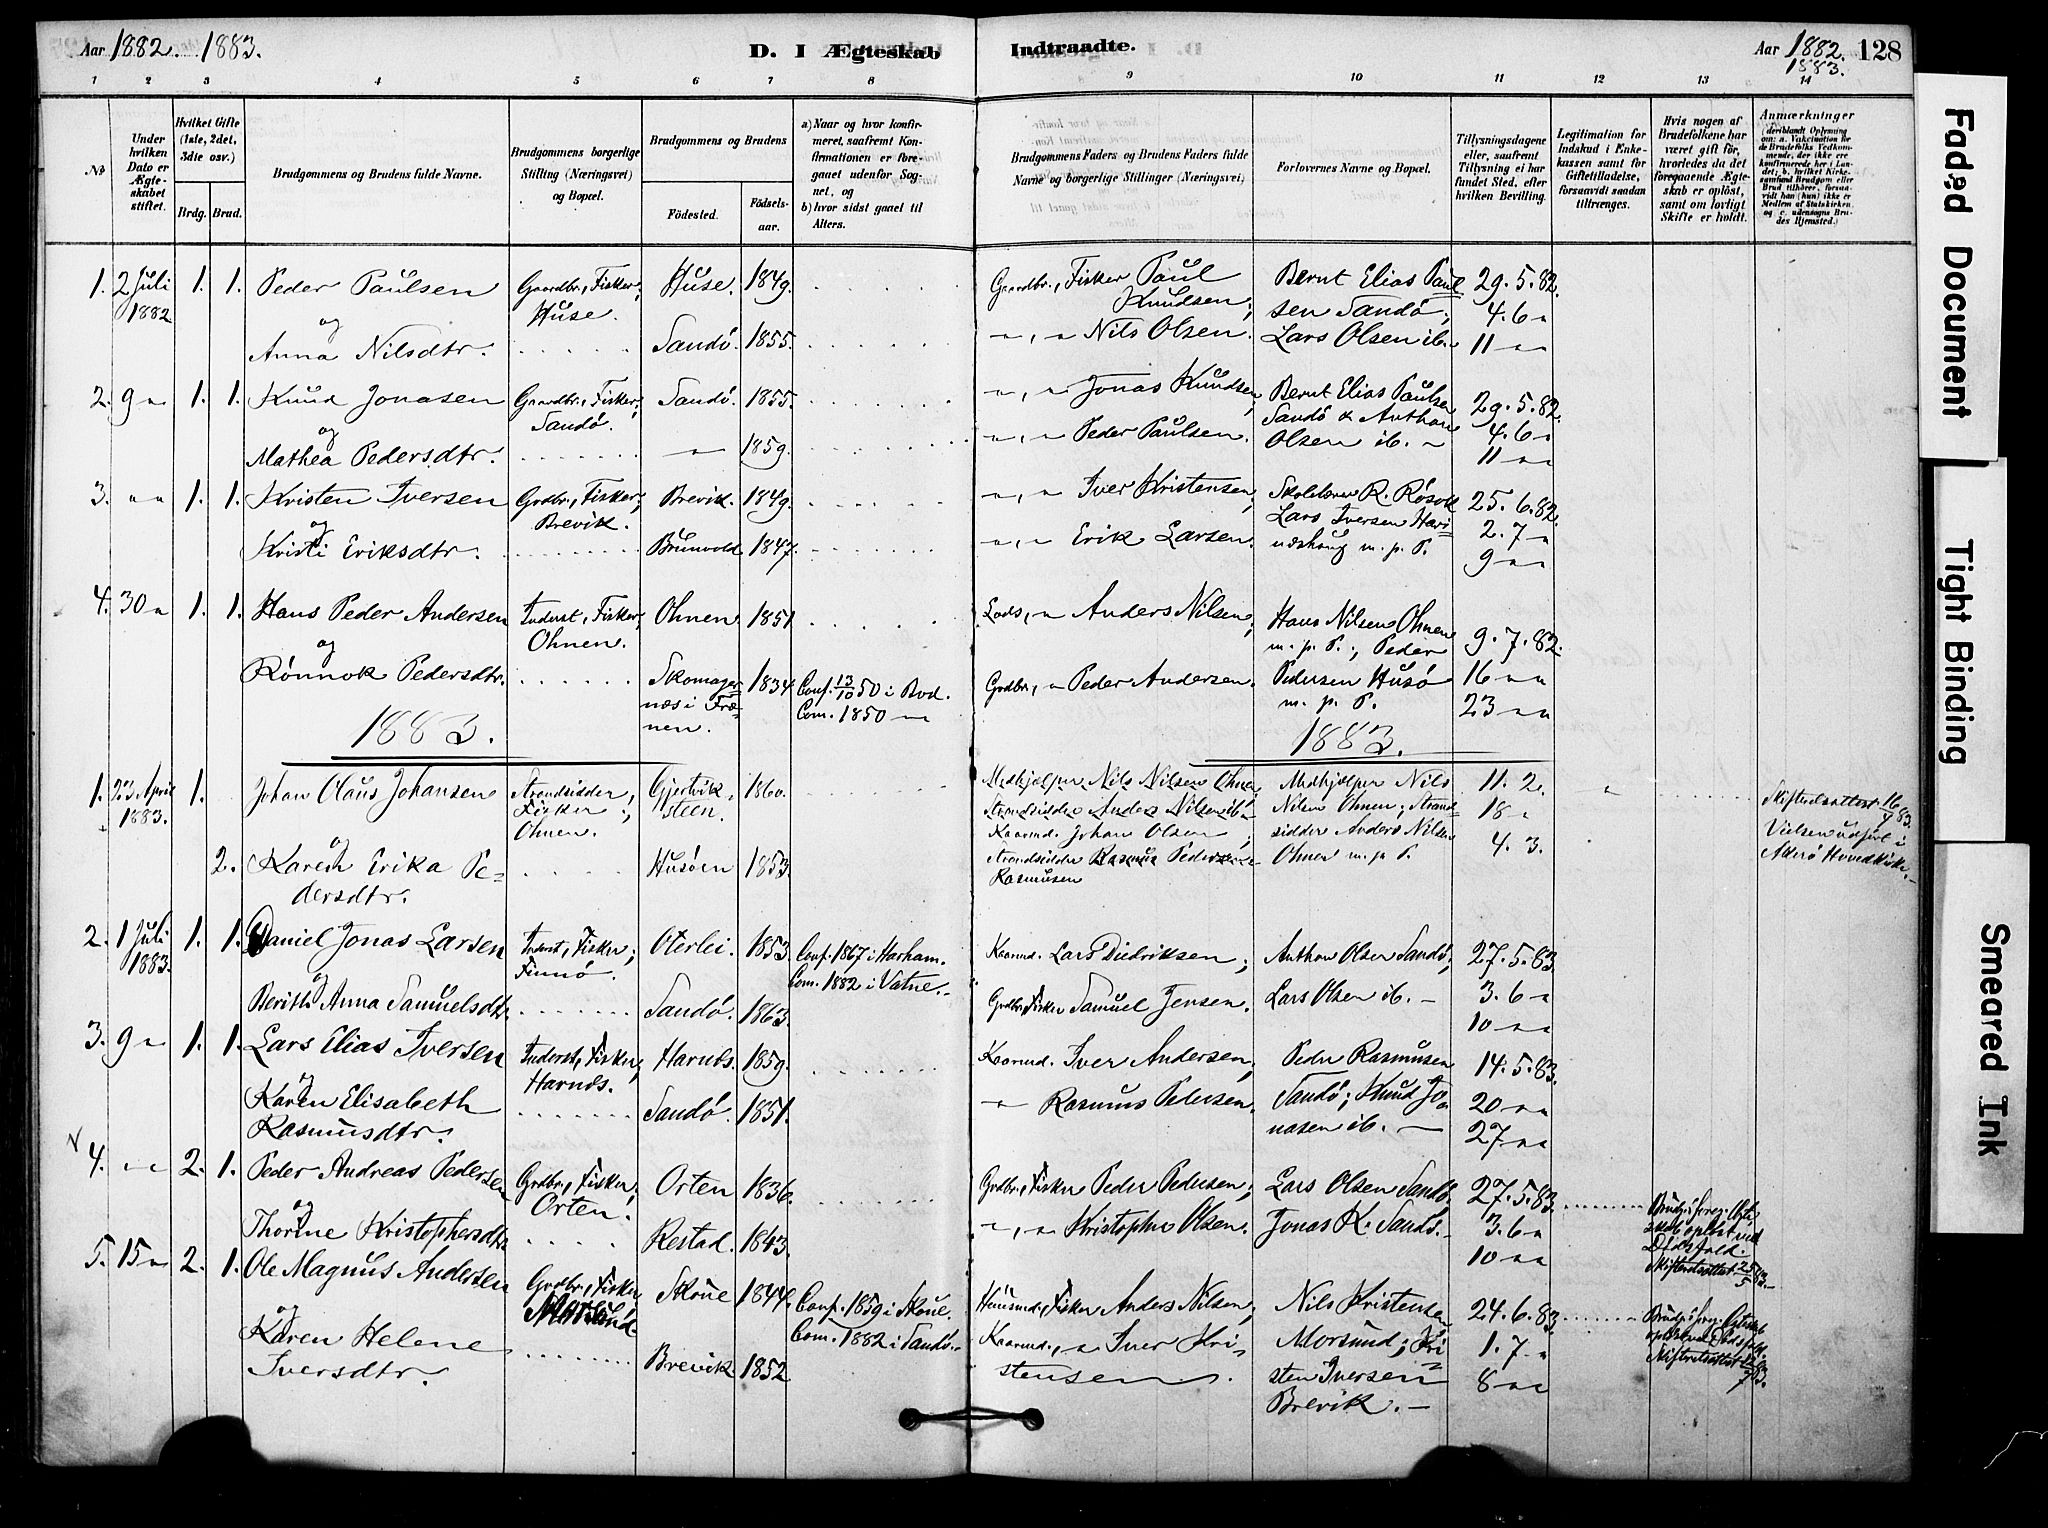 Aar 1882. 1883. D. I Ægteskab Indtraadte. Aar 1882. 1883. 128
1 2 3 4 5 6 7 8 9 10 11 12 13 14
№
Under hvilken Dato er Ægteskabet stiftet.
Hvilket Gifte (1ste, 2det, 3die osv.)
Brdg. Brud.
Brudgommens og Brudens fulde Navne.
Brudgommens borgerlige Stilling (Næringsvei) og Bopæl.
Brudgommens og Brudens
Födested. Födselsaar.
a) Naar og hvor konfirmeret, saafremt Konfirmationen er foregaaet udenfor Sognet, og
b) hvor sidst gaaet til Alters.
Brudgommens Faders og Brudens Faders fulde Navne og borgerlige Stillinger (Næringsvei)
Forlovernes Navne og Bopæl.
Tillysningsdagene eller, saafremt Tillysning ei har fundet Sted, efter hvilken Bevilling.
Legitimation for Indskud i Enkekassen samt for Giftetilladelse, forsaavidt saadan tiltrænges.
Hvis nogen af Brudefolkene har været gift för, hvorledes da det foregaaende Ægteskab er oplöst, samt om lovligt Skifte er holdt.
Anmærkninger
(deriblandt Oplysning om: a. Vakcination for de Brudefolks Vedkommende, der ikke ere konfirmerede her i Landet; b. hvilket Kirkesamfund Brudgom eller Brud tilhörer, forsaavidt han (hun) ikke er Medlem af Statskirken, og c. udensogns Brudes Hjemsted.)
1. 2 Juli 1882 1. 1. Peder Paulsen Gaardbr., Fisker, Huse. Huse. 1849. Gaardbr., Fisker Paul Knudsen; Bernt Elias Paulsen Sandö; 29.5.82. 4.6 "
og
Anna Nilsdtr. Sandö. 1855. ", " Nils Olsen. Lars Olsen ib. 11 " "
2. 9 " 1. 1. Knud Jonasen Gaardbr., Fisker, Sandö. Sandö. 1855. ", " Jonas Knudsen; Bernt Elias Paulsen Sandö & Anthon Olsen ib. 29.5.82. 4.6 " 11 " "
og
Mathea Pedersdtr. " 1859. ", " Peder Paulsen.
3. " " 1. 1. Kristen Iversen Grdbr., Fisker, Brevik. Brevik. 1849. ", " Iver Kristensen; R. Røsok Lars Iversen 25.6.82. 2.7 "
og
Kristi Eriksdtr. Brunvold 1847. ", " Erik Larsen. m. p. P. 9 " "
4. 30 " 1. 1. Hans Peder Andersen Inderst, Fisker, Ohnen. Ohnen. 1851. Lods, " Anders Nilsen; Hans Nilsen Ohnen m. p. P.; Peder 9.7.82.
og
Rönnok Pedersdtr. Skomagernæs i Frænen. 1834. Conf. 13/10 50 i Bod. Com. 1850 " Grdbr., " Peder Andersen. Pedersen Husö m. p. P. 16 " " 23 " "
1883. 1883.
1. 23 April 1883. 1. Johan Olaus Johansen Strandsidder, Fisker; Ohnen. 1860. Medhjælper Nils Nilsen Ohnen; Strandsidder Anders Nilsen ib. Kaarmd. Johan Olsen; Medhjælper Nils Nilsen Ohnen; Strandsidder Anders Nilsen Ohnen m. p. P. 11.2. 18 " 4.3. Skifteretsattest 16/4 83. Vielsen udført i Akerö Hovedkirke.
og
2. Karen Erika Pedersdtr. Husöen 1853. Strandsidder Rasmus Rasmusen
2. 1 Juli 1883. 1. 1. Daniel Jonas Larsen Inderst, Fisker; Finnö. Oterlei. 1853. Conf. 1867 i Harham. Com. 1882 i Vatne. Kaarmd. Lars Diedriksen; Anthon Olsen Sandö; 27.5.83.
og
Berith Anna Samuelsdtr. Sandö. 1863. Grdbr., Fisker Samuel Jensen. Lars Olsen ib. 3.6 " 10 " "
3. 9 " 1. 1. Lars Elias Iversen Inderst, Fisker, Harnæs. Harnæs. 1859. Kaarmd. Iver Andersen; Peder Rasmusen Sandö; Knud Jonasen ib. 14.5.83.
og
Karen Elisabeth Rasmusdtr. Sandö. 1851. " Rasmus Pedersen. 20 " " 27 " "
4. " " 2. 1. Peder Andreas Pedersen Grdbr., Fisker, Orten. Orten 1836. Grdbr., Fisker Peder Pedersen; Lars Olsen Sandö, 27.5.83. Brudg.s foreg. Ægteskab oplöst ved Dödsfald. Skifteretsattest 25/5 83.
og
Thorine Kristophersdtr. Restad. 1843. ", " Kristopher Olsen. Jonas K. Sandö. 3.6 " 10 " "
5. 15 " 2. 1. Ole Magnus Andersen Grdbr., Fisker, Morsund. Skoue 1844. Conf. 1859 i Skoue. Com. 1882 i Sandö. Huusmd., Fisker Anders Nilsen; Nils Kristensen Morsund; Kristen Iversen Brevik. 24.6.83. Brudg.s foreg. Ægteskab oplöst ved Dödsfald.
og
Karen Helene Iversdtr. Brevik 1852 Kaarmd., " Iver Kristensen. 1.7 " 8 " "
Faded Document
Tight Binding
Smeared Ink